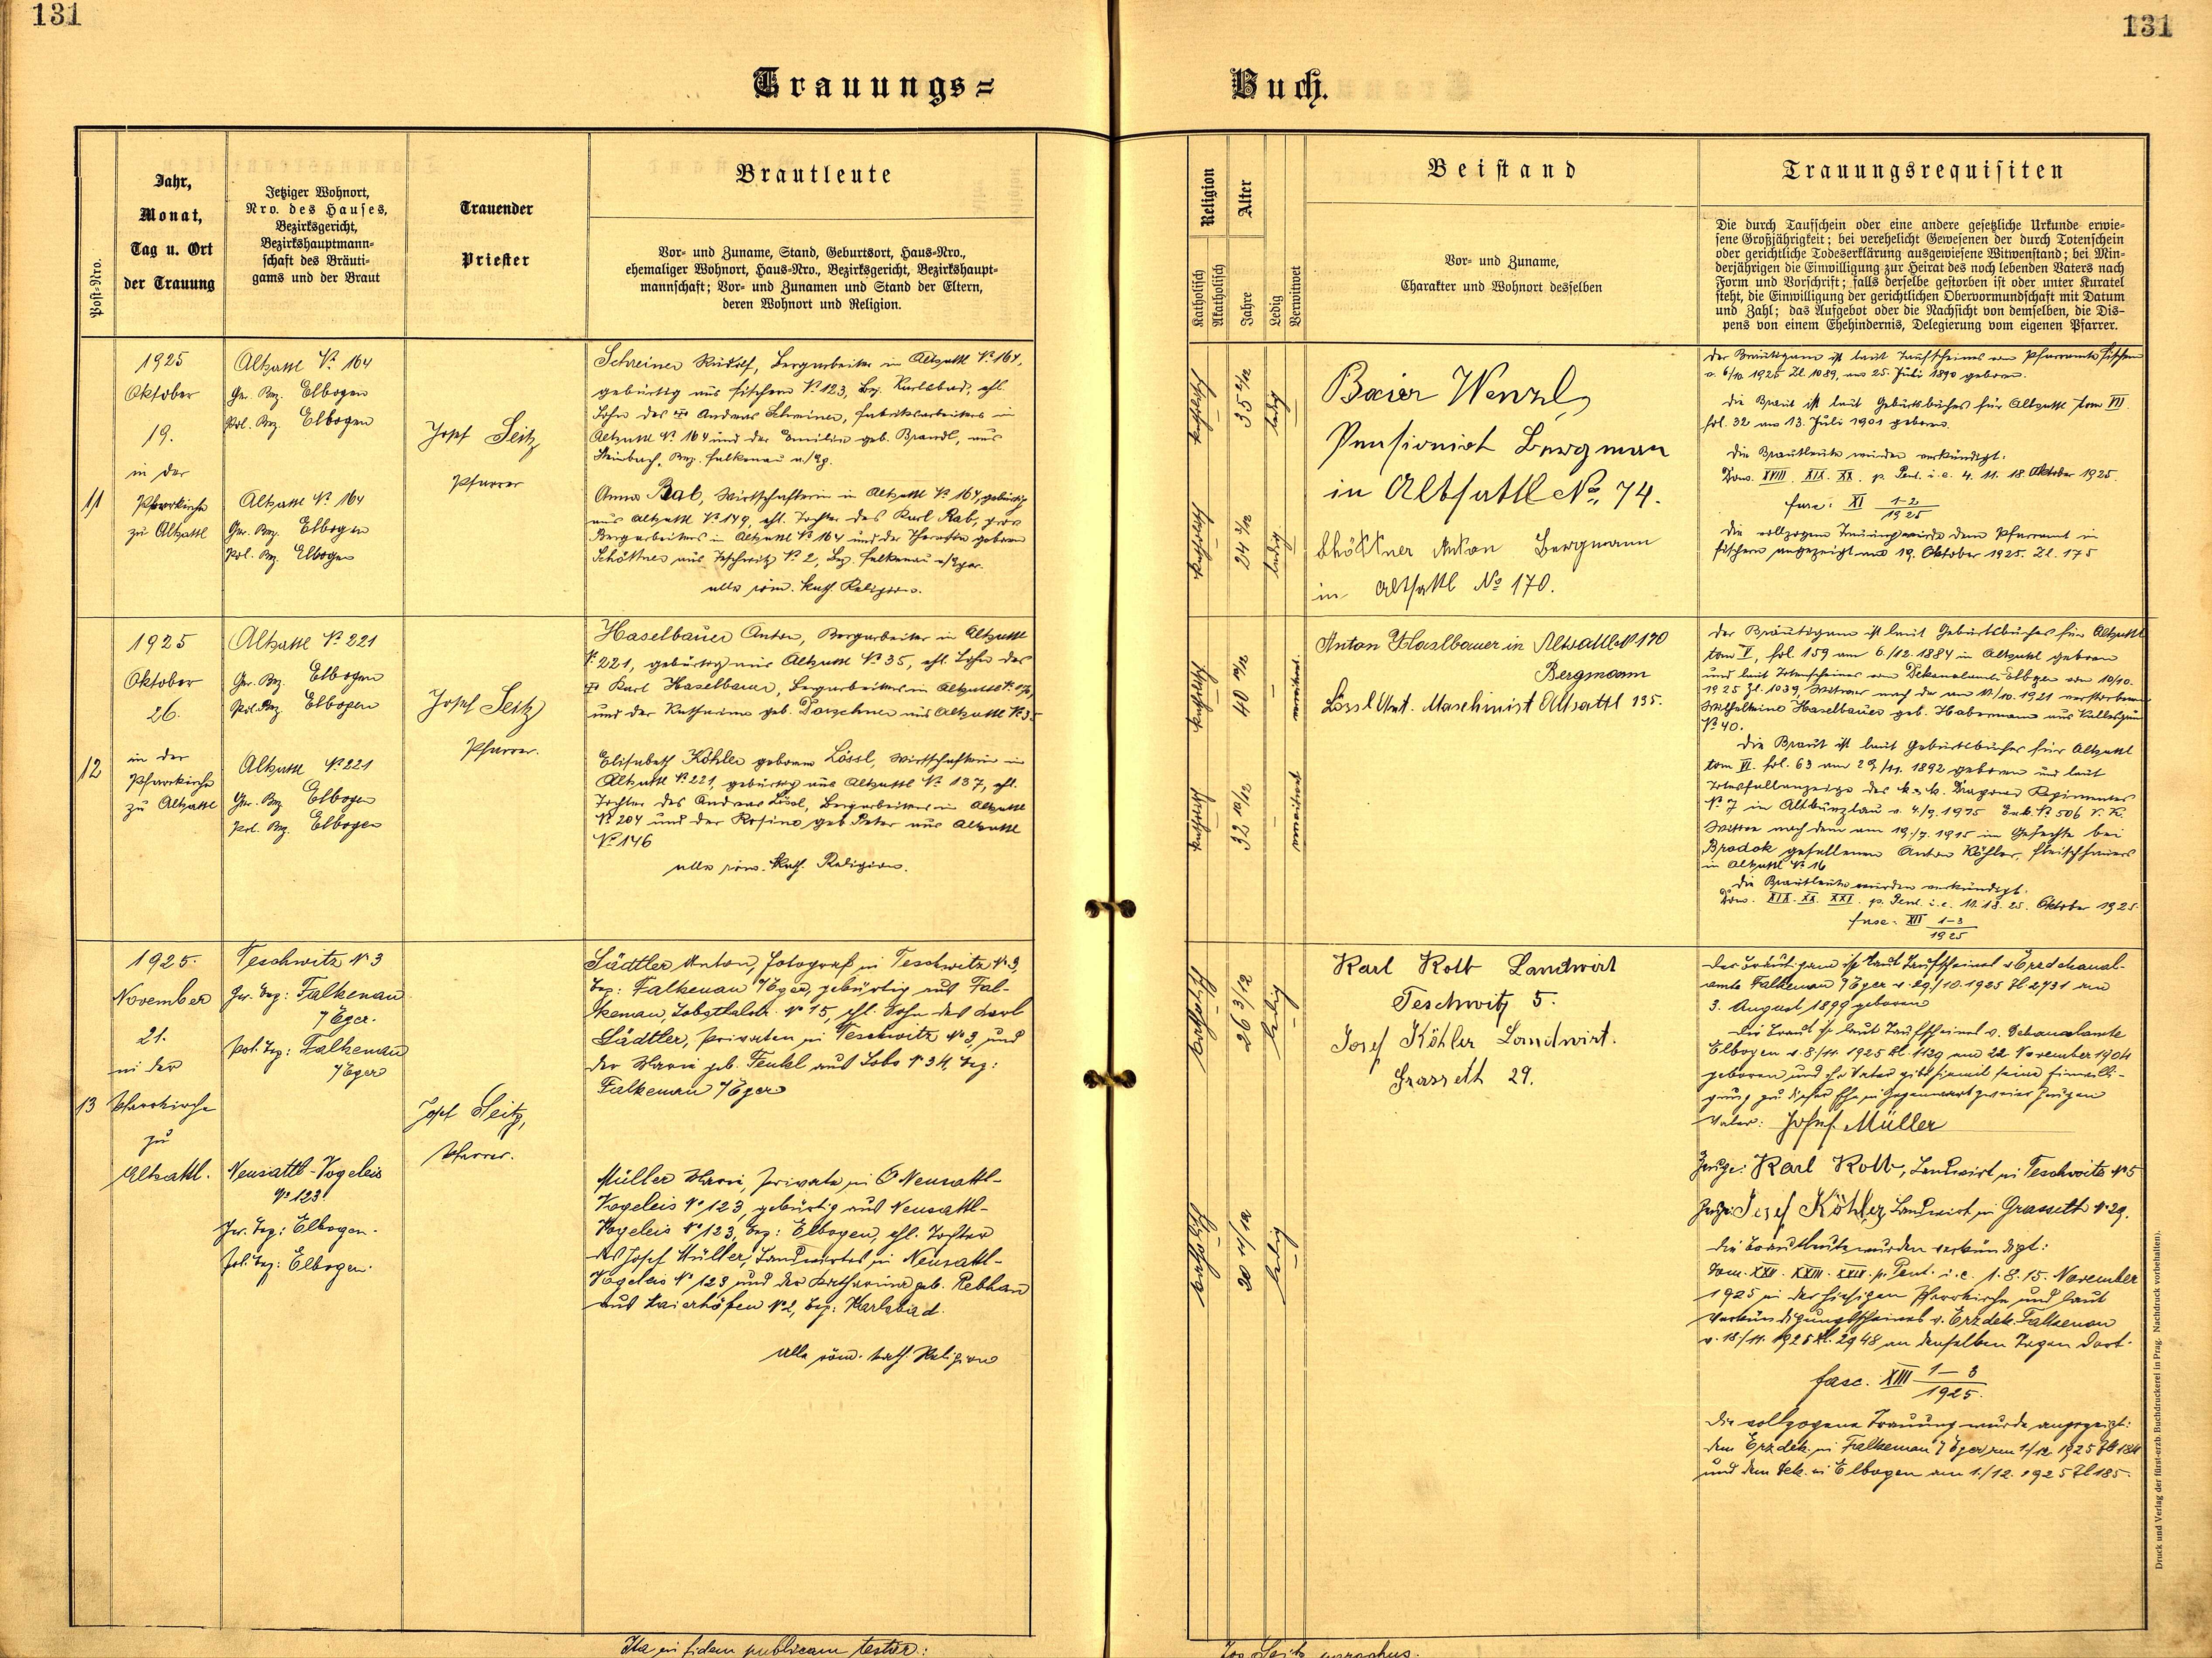 131
131
Trauungs=
Buch.
Post-Nro.
Jahr,
Monat,
Tag u. Ort
der Trauung
Jetziger Wohnort,
Nro. des Hauses,
Bezirksgericht,
Bezirkshauptmann-
schaft des Bräuti-
gams und der Braut
Trauender
Priester
Brautleute
Vor- und Zuname, Stand, Geburtsort, Haus-Nro.,
ehemaliger Wohnort, Haus-Nro., Bezirksgericht, Bezirkshaupt-
mannschaft; Vor- und Zunamen und Stand der Eltern,
deren Wohnort und Religion.
Religion
Katholisch
Akatholisch
Alter
Jahre
Ledig
Verwitwet
Beistand
Vor- und Zuname,
Charakter und Wohnort desselben
Trauungsrequisiten
Die durch Taufschein oder eine andere gesetzliche Urkunde erwie-
sene Großjährigkeit; bei verehelicht Gewesenen der durch Totenschein
oder gerichtliche Todeserklärung ausgewiesene Witwenstand; bei Min-
derjährigen die Einwilligung zur Heirat des noch lebenden Vaters nach
Form und Vorschrift; falls derselbe gestorben ist oder unter Kuratel
steht, die Einwilligung der gerichtlichen Obervormundschaft mit Datum
und Zahl; das Aufgebot oder die Nachsicht von demselben, die Dis-
pens von einem Ehehindernis, Delegierung vom eigenen Pfarrer.
11
1925
Oktober
19.
in der
Pfarrkirche
zu Altsattl
Altsattl № 164
Ger. Bez. Elbogen
Pol. Bez. Elbogen
Altsattl № 164
Ger. Bez. Elbogen
Pol. Bez. Elbogen
Josef Seitz
Pfarrer
Schreiner Rudolf, Bergarbeiter in Altsattl № 164,
gebürtig aus Fischern № 123, Bez. Karlsbad, ehl.
Sohn des Andreas Schreiner, Fabriksarbeiters in
Altsattl № 164 und der Emilie geb. Brandl, aus
Steinbach, Bez. Falkenau a./Eg.
Anna Rab, Wirtschafterin in Altsattl № 164, gebürtig
aus Altsattl № 149, ehl. Tochter des Karl Rab,
Bergarbeiters in Altsattl № 164 und der Theresia geboren
Schöttner aus Teschwitz № 2, Bez. Falkenau a/Eger.
alle röm. kath. Religion.
katholisch
35 2/12
ledig
katholisch
24 3/12
ledig
Baier Wenzl
Pensionist Bergman
in Altsattl No. 74.
Schöttner Anton Bergmann
in Altsattl № 170.
Der Bräutigam ist laut Taufscheines vom Pfarramte Fischern
v. 6/10 1925 Zl 1089, am 25. Juli 1890 geboren.
Die Braut ist laut Geburtsbuches für Altsattl Tom VII
fol. 32 am 13. Juli 1901 geboren.
Die Brautleute wurden verkündigt:
Dom. XVIII. XIX. XX. p. Pent. i. e. 4. 11. 18. Oktober 1925.
fasc: XI 1-2
1925
Die vollzogene Trauung wurde dem Pfarramt in
Fischern angezeigt am 19. Oktober 1925. Zl. 175
12
1925
Oktober
26.
in der
Pfarrkirche
zu Altsattl
Altsattl № 221
Ger. Bez. Elbogen
Pol. Bez. Elbogen
Altsattl № 221
Ger. Bez. Elbogen
Pol. Bez. Elbogen
Josef Seitz
Pfarrer.
Haselbauer Anton, Bergarbeiter in Altsattl
№ 221, gebürtig aus Altsattl № 35, ehl. Sohn des
Karl Haselbauer, Bergarbeiters in Altsattl
und der Katharina geb. Dorschner aus Altsattl № 35
Elisabeth Köhler geborene Lössl, Wirtschafterin in
Altsattl № 221, gebürtig aus Altsattl № 137, ehl.
Tochter des Andreas Lössl, Bergarbeiters in Altsattl
№ 204 und der Rosina geb. Peter aus Altsattl
№ 146
alle röm. kath. Religion.
katholisch
40 10/12
verwitwet
katholisch
32 10/12
verwitwet
Anton Haslbauer in Altsattl № 170
Bergmann
Lössl Ant. Maschinist Altsattl 135.
Der Bräutigam ist laut Geburtsbuches für Altsattl
Tom V, fol. 159 am 6./12. 1884 in Altsattl geboren
und laut Totenscheines vom Dekanalamte Elbogen vom 10/10.
1925 Zl. 1039, Witwer nach der am 10./10. 1921 verstorbenen
Wilhelmine Haselbauer geb. Habermann aus
№ 40.
Die Braut ist laut Geburtsbuches für Altsattl
Tom VI. fol. 63 am 29/11. 1892 geboren und laut
Totesfallanzeige des k. u. k. Dragoner Regimentes
№ 7 in Altbunzlau v. 4/9. 1915 Exh. № 506 V. K.
Witwe nach dem am 19./7. 1915 im Gefechte bei
Brodok gefallenen Anton Köhler, Fleischhauers
in Altsattl № 16
Die Brautleute wurden verkündigt:
Dom. XIX. XX. XXI. p. Pent. i. e. 11. 18. 25. Oktober 1925.
fasc. XII 1-3
1925
13
1925.
November
21.
in der
Pfarrkirche
zu
Altsattl.
Teschwitz № 3
Ger. Bez: Falkenau
/Eger.
Pol. Bez: Falkenau
/Eger
Neusattl-Vogeleis
№ 123
Ger. Bez: Elbogen.
Pol. Bez: Elbogen.
Josef Seitz,
Pfarrer.
Südtler Anton, Fotograf in Teschwitz № 3,
Bez: Falkenau /Eger, gebürtig aus Fal-
kenau, № 15, ehl. Sohn des Karl
Südtler, Privaten in Teschwitz № 3, und
der Marie geb. Fenkl aus Lobs № 34, Bez:
Falkenau /Eger
Müller Marie, Private in Neusattl-
Vogeleis № 123, gebürtig aus Neusattl-
Vogeleis № 123, Bez: Elbogen, ehl. Tochter
des Josef Müller, Landwirtes in Neusattl-
Vogeleis № 123 und der Katharina geb. Rebhan
aus Maierhöfen № 2, Bez: Karlsbad.
Alle röm. kath. Religion
katholisch
26 3/12
ledig
katholisch
20 11/12
ledig
Karl Kolb Landwirt
Teschwitz 5.
Josef Köhler Landwirt.
Grasseth 29.
Der Bräutigam ist laut Taufscheines v. Erzdekanal-
amte Falkenau /Eger v. 29./10. 1925 Zl 2731 am
3. August 1899 geboren
Die Braut ist laut Taufscheines v. Dekanalamte
Elbogen v. 8/11. 1925 Zl. 1129 am 22. November 1904
geboren und ihr Vater gibt hiemit seine Einwilli-
gung zu dieser Ehe in Gegenwart zweier Zeugen
Vater: Josef Müller
Zeuge: Karl Kolb, Landwirt in Teschwitz № 5
Zeuge: Josef Köhler, Landwirt in Grasseth № 29.
Die Brautleute wurden verkündigt:
Dom. XXII. XXIII. XXIV. p. Pent. i. e. 1. 8. 15. November
1925 in der hiesigen Pfarrkirche und laut
Verkündigungsscheines v. Erzdek. Falkenau
v. 18/11. 1925 Zl. 2948 an denselben Tagen dort.
fasc. XIII 1-3
1925.
Die vollzogene Trauung wurde angezeigt:
dem Erzdek. in Falkenau /Eger am 1/12. 1925 Zl 184
und dem Dek. in Elbogen am 1./12. 1925 Zl 185.
Ita in fidem publicam testor:
Jos Seitz parochus.
Druck und Verlag der fürst-erzb. Buchdruckerei in Prag. Nachdruck vorbehalten.